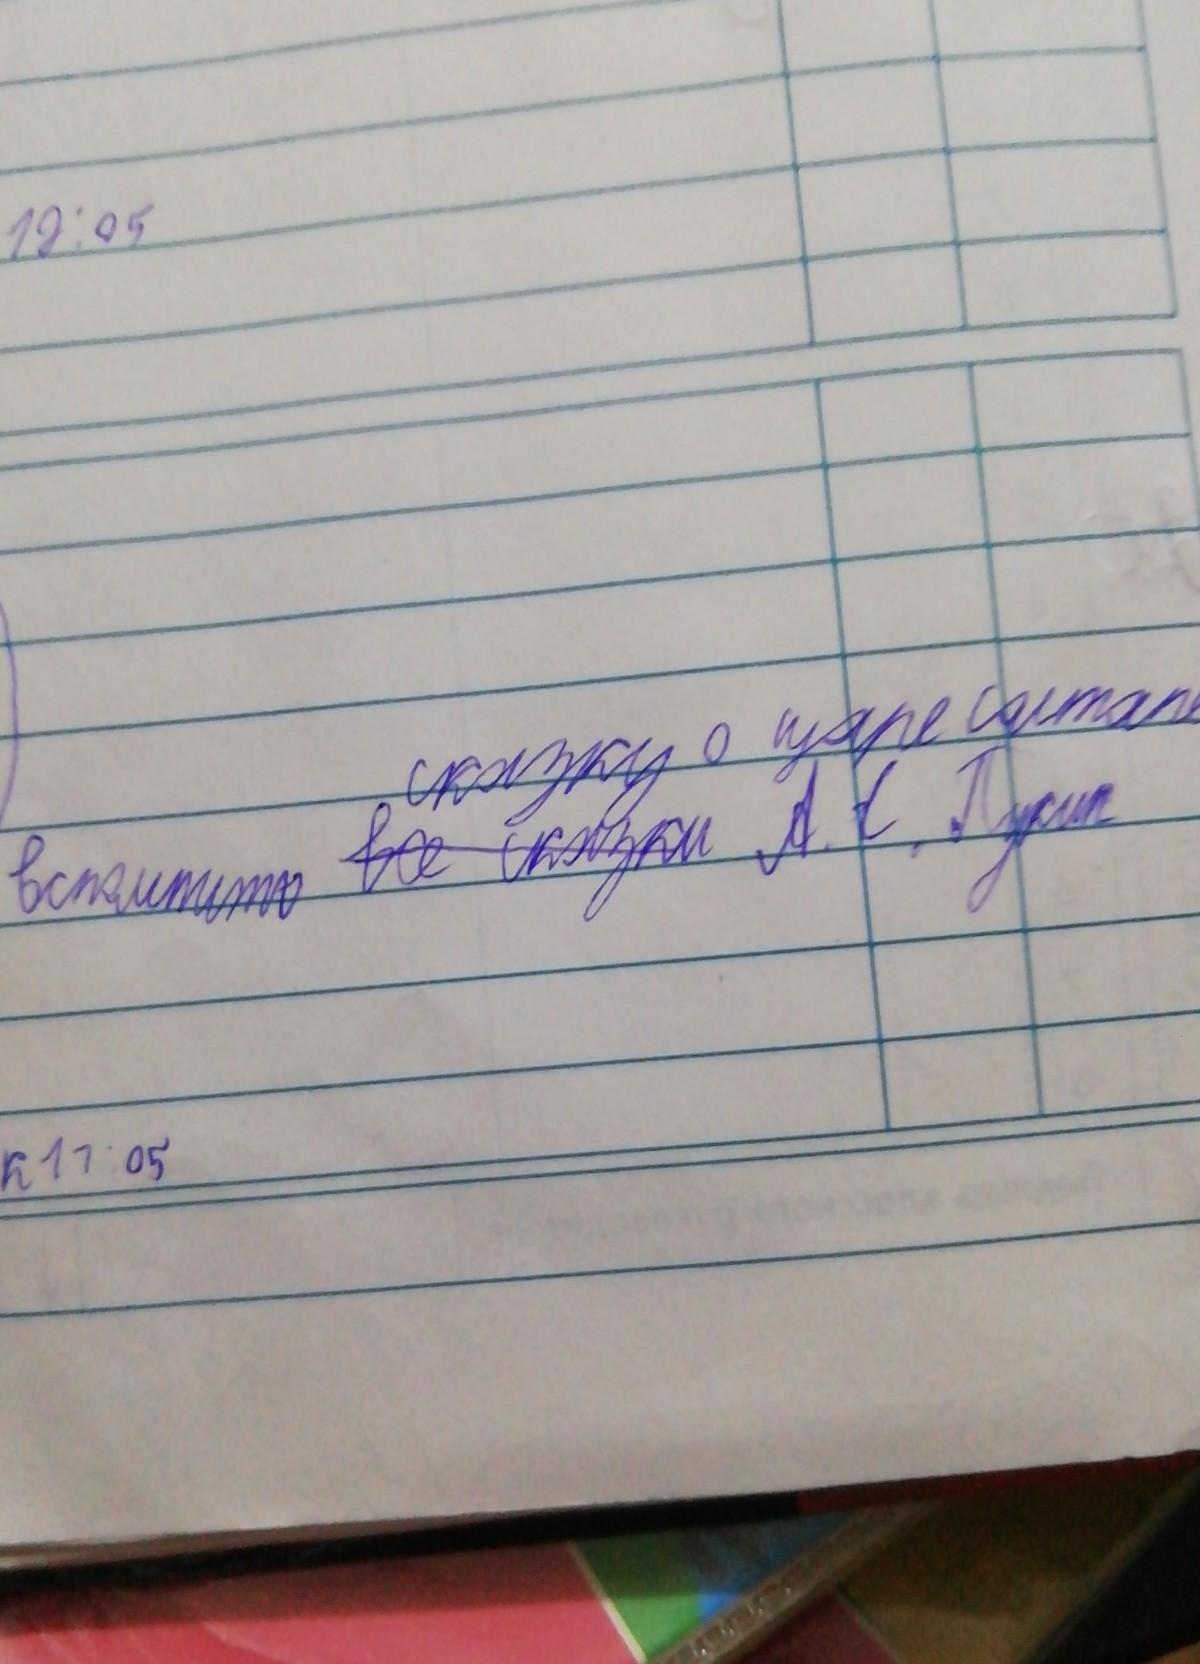 12:05
сказку о царе салтане
вспомнить все сказки А. С. Пукин
к 11:05